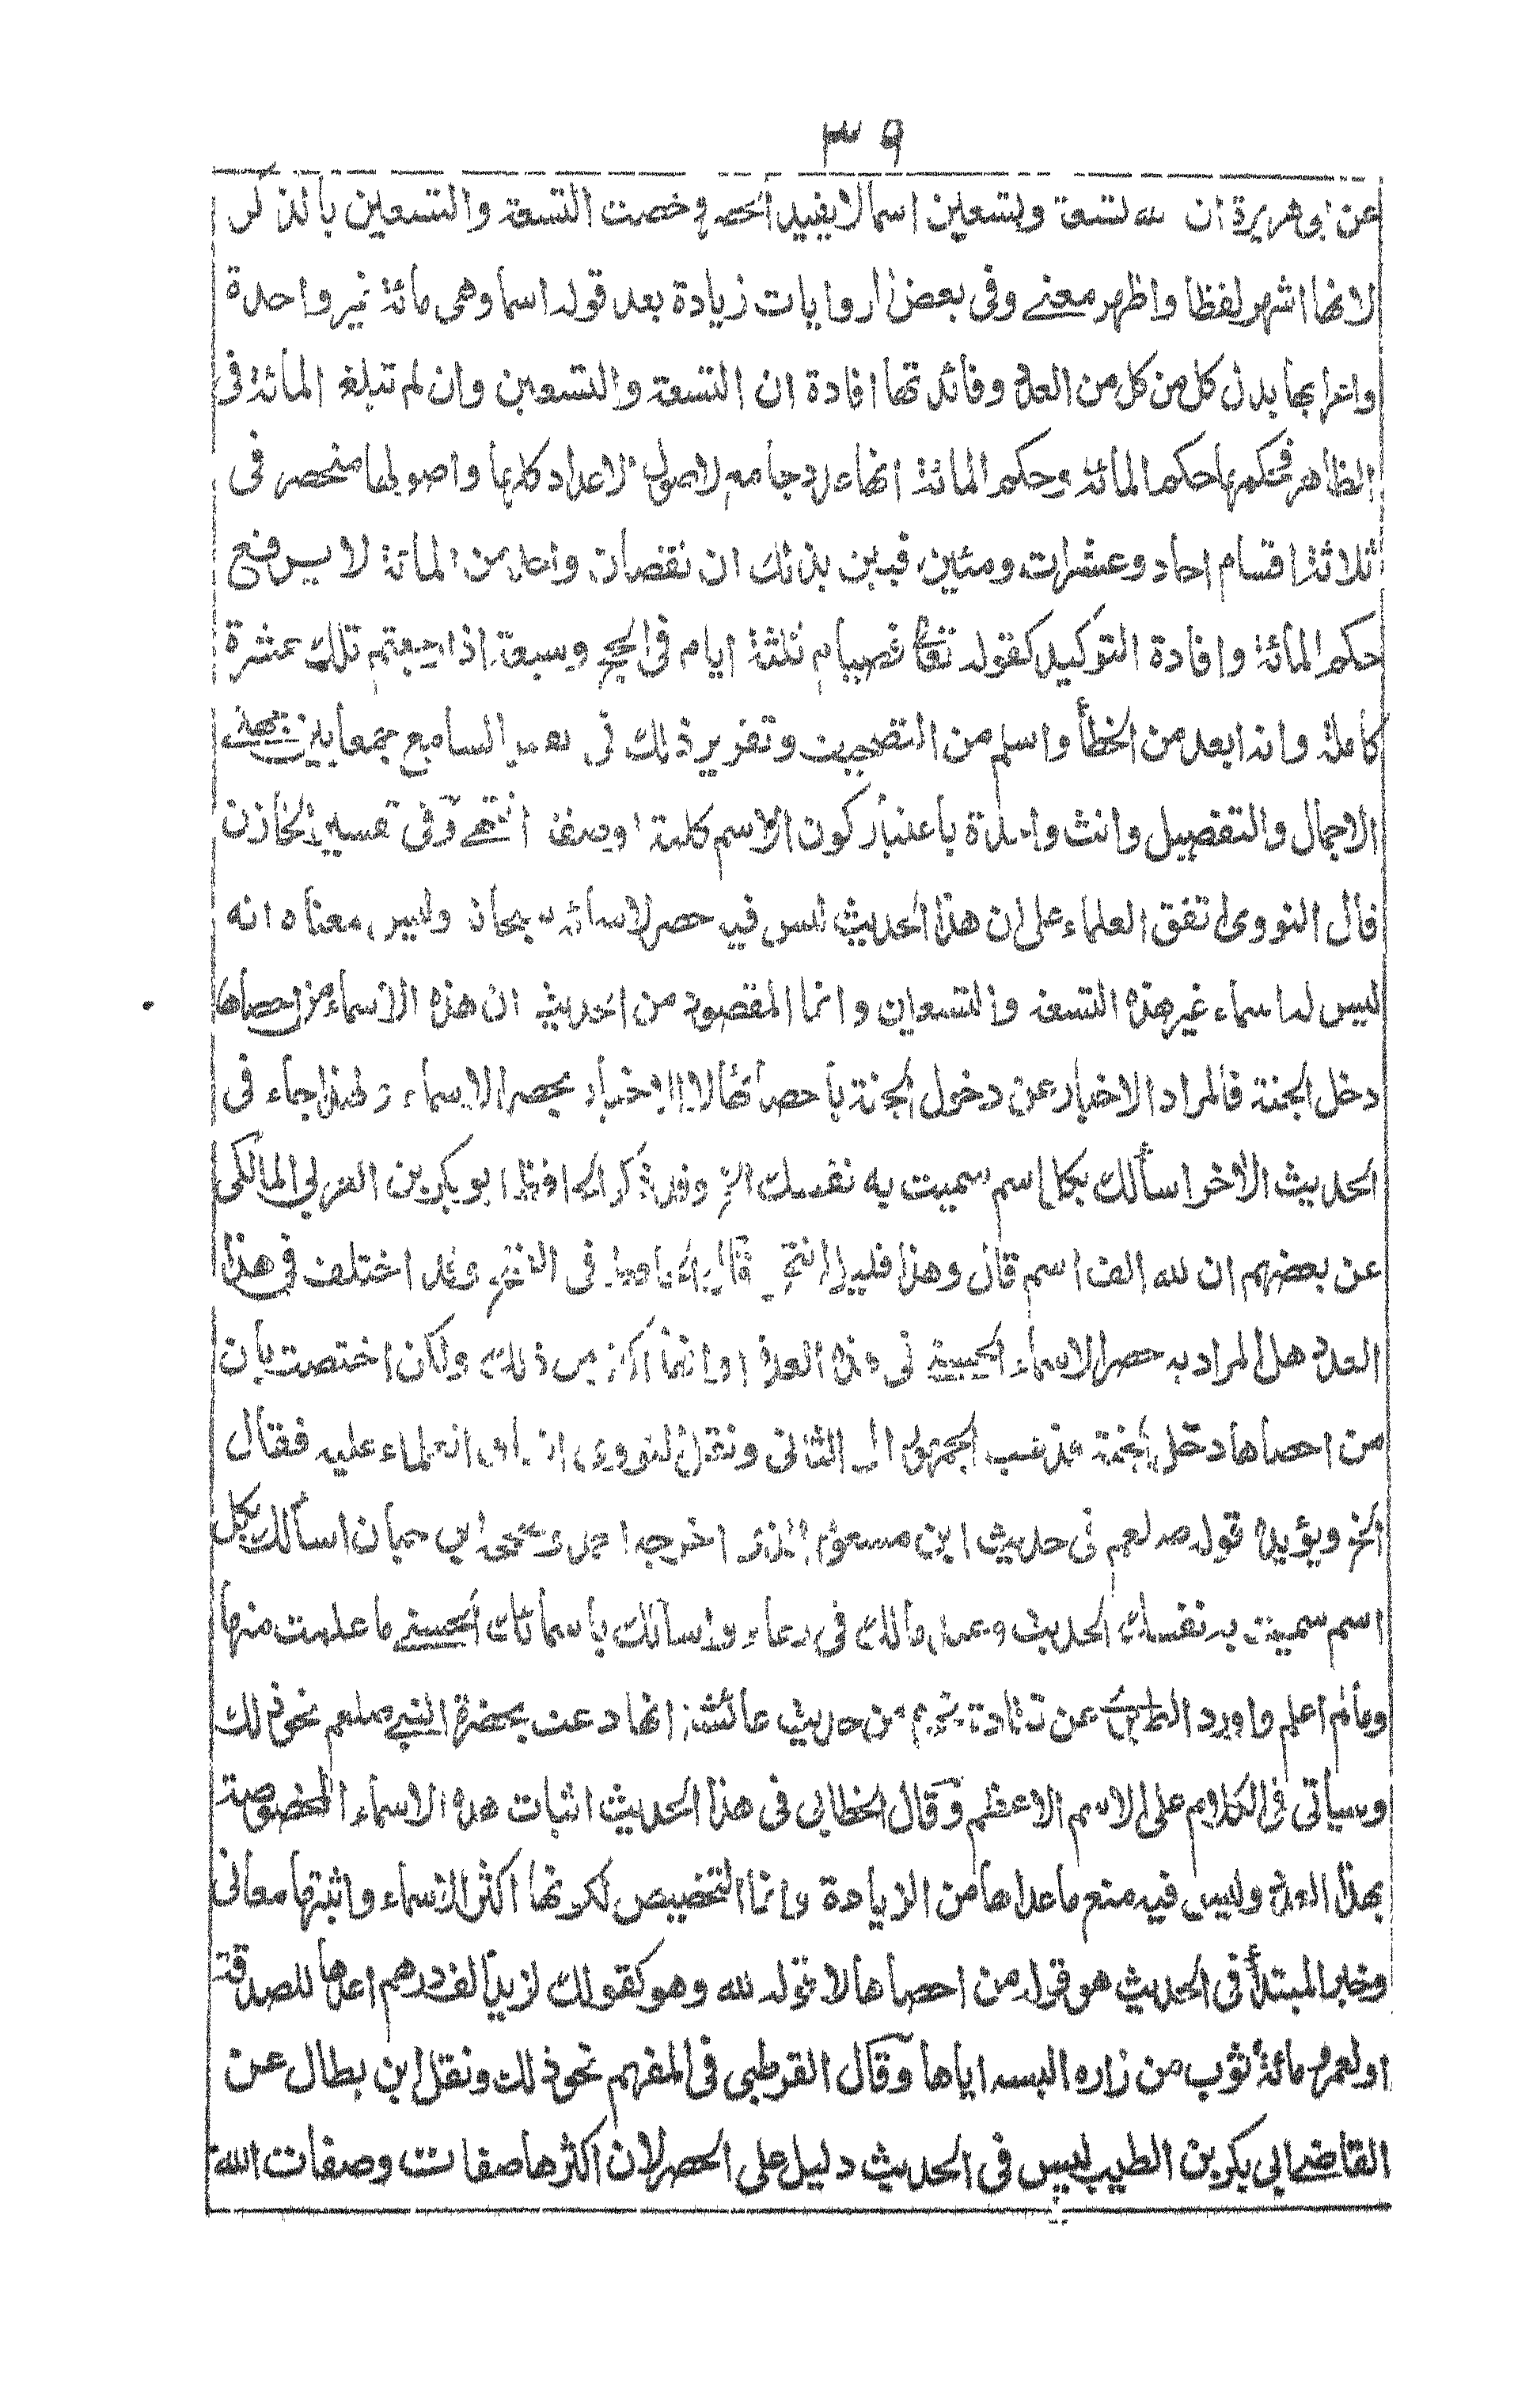 ٣٩
عن ابی هريرة ان لله تسعة وتسعين اسما لا يفيد الحصر وخصت التسعة والتسعين بالذكر
لانها اشهر لفظا واظهر معنے وفی بعض الروايات زيادة بعد قوله اسما وهی مائة غير واحدة
واعرابها بدل كل من كل من العدد وفائدتها افادة ان التسعة والتسعين وان لم تبلغ المائة فی
الظاهر فحكمها حكم المائة وحكم المائة انهاء لاصول الاعداد كلها واصولها منحصر فی
ثلاثة اقسام احاد وعشرات ومئين فبين بذلك ان نقصان واحد من المائة لا يرفع
حكم المائة وافادة التوكيد كقوله تعا فصيام ثلثة ايام فی الحج وسبعة اذا رجعتم تلك عشرة
كاملة وانه ابعد من الخطأ واسلم من التصحيف وتقرير ذلك فی السامع بجمعا بين جهتے
الاجمال والتفصيل وانث واحدة باعتبار كون الاسم كلمة او صفة انتهے وفی تفسير الخازن
قال النووی اتفق العلماء علی ان هذا الحديث ليس فيه حصر لاسمائه سبحانه وليس معناه انه
ليس له اسماء غير هذه التسعة والتسعين وانما المقصود من الحديث ان هذه الاسماء من احصاها
دخل الجنة فالمراد الاخبار عن دخول الجنة باحصائها لا الاخبار بحصر الاسماء ولهذا جاء فی
الحديث الاخر اسألك بكل اسم سميت به نفسك الخ وقد ذكر الحافظ ابو بكر بن العربی المالكی
عن بعضهم ان لله الف اسم قال وهذا قليل انتهے قال الحافظ فی الفتح وقد اختلف فی هذا
العدد هل المراد به حصر الاسماء الحسنے فی هذه العدة او انها اكثر من ذلك ولكن اختصت بان
من احصاها دخل الجنة فذهب الجمهور الی الثانی ونقل النووی اتفاق العلماء عليه فقال
الخ ويؤيده قوله صلعم فی حديث ابن مسعود الذی اخرجه احمد وصححه ابن حبان اسألك بكل
اسم سميت به نفسك الحديث وعند مالك فی دعاء واسألك باسمائك الحسنے ما علمت منها
وما لم اعلم واورد الطبری عن قتادة نحوه من حديث عائشة انها دعت بحضرة النبے صلعم نحو ذلك
وسياتی فی الكلام علی الاسم الاعظم وقال الخطابی فی هذا الحديث اثبات هذه الاسماء المخصوصة
بهذا العدد وليس فيه منع ما عداها من الزيادة وانما التخصيص لكونها اكثر الاسماء واثبتها معانی
وخبر المبتدأ فی الحديث هو قوله من احصاها لا قوله لله وهو كقولك لزيد الف درهم اعدها للصدقة
او لعمرو مائة ثوب من زاره البسه اياها وقال القرطبی فی المفهم نحو ذلك ونقل ابن بطال عن
القاضے ابی بكر بن الطيب ليس فی الحديث دليل علی الحصر لان اكثرها صفات وصفات الله